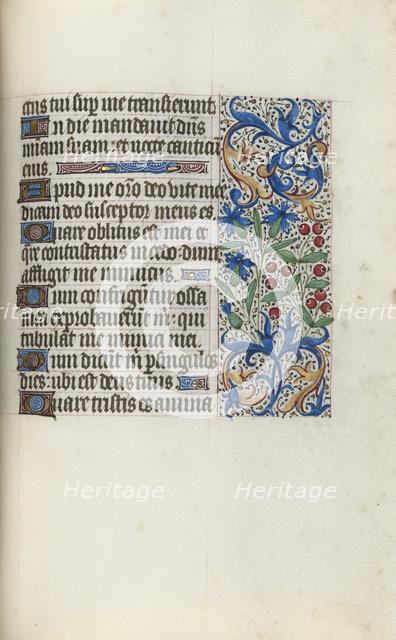 ctus tui sup me transierunt
In die mandauit dns
miam suam: et nocte canticu
eius
Apud me oro deo vite mee
dicam deo susceptor meus es
Quare oblitus est mei et
qre contristatus incedo: dum
affligit me inimicus
Dum confrigutur ossa
mea exprobauerut m: qui
tribulat me inimici mei
Dum dicut m p singulos
dies: ubi est deus tuus
Quare tristis es anima
Heritage
Heritage
Heritage
Heritage
Heritage